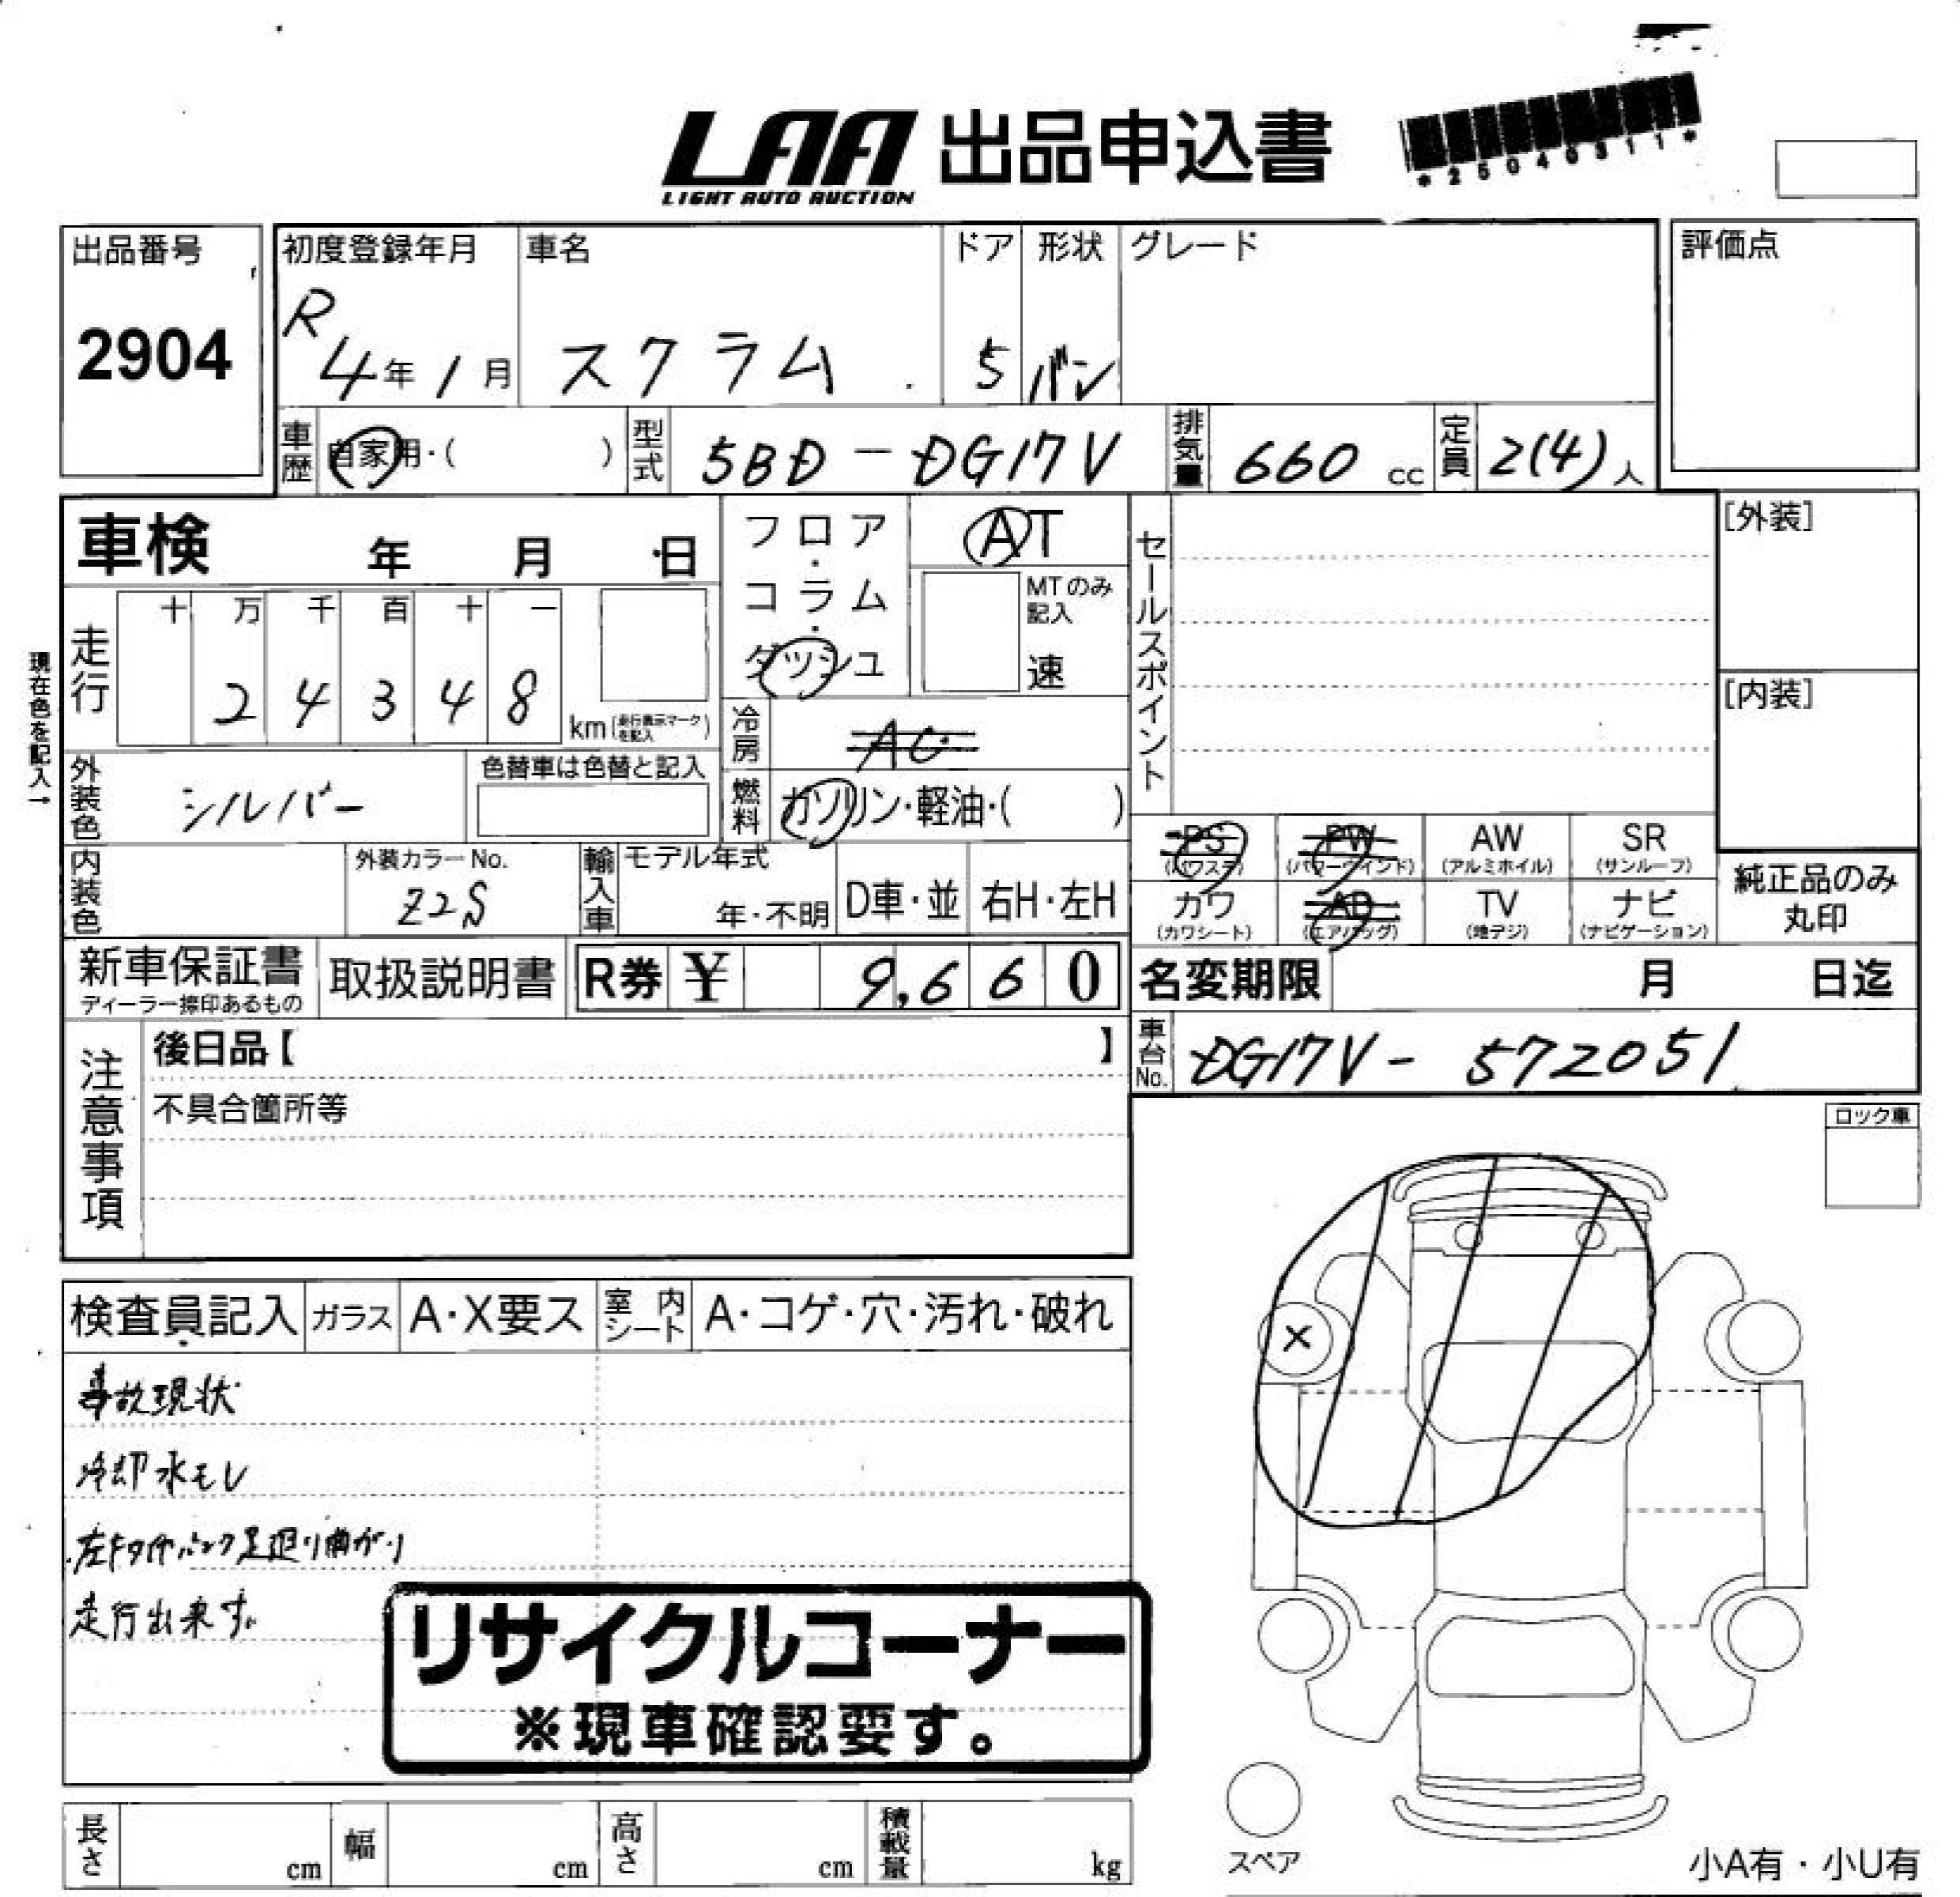 LAA 出品申込書
LIGHT AUTO AUCTION
*25040311*
出品番号
2904
初度登録年月
R
4年1月
車名
スクラム
ドア
5
形状
バン
グレード
評価点
車歴
自家用・( )
型式
5BD-DG17V
排気量
660 cc
定員
2(4)人
車検 年 月 日
フロア・コラム・ダッシュ
AT
MTのみ記入
速
セールスポイント
[外装]
[内装]
現在色を記入→
走行
十 万 千 百 十 一
2 4 3 4 8
km(走行表示マークを記入)
冷房
AC
燃料
ガソリン・軽油・( )
外装色
シルバー
色替車は色替と記入
内装色
外装カラーNo.
Z2S
輸入車
モデル年式
年・不明
D車・並
右H・左H
PS
(パワステ)
PW
(パワーウインド)
AW
(アルミホイル)
SR
(サンルーフ)
カワ
(カワシート)
AB
(エアバッグ)
TV
(地デジ)
ナビ
(ナビゲーション)
純正品のみ
丸印
新車保証書
ディーラー捺印あるもの
取扱説明書
R券 ¥ 9,660
名変期限 月 日迄
車台No.
DG17V-572051
注意事項
後日品【 】
不具合箇所等
ロック車
検査員記入
ガラス
A・X要ス
室内シート
A・コゲ・穴・汚れ・破れ
事故現状
冷却水モレ
左Fタイヤパンク足廻り曲がり
走行出来ず。
リサイクルコーナー
※現車確認要す。
×
スペア
小A有・小U有
長さ cm
幅 cm
高さ cm
積載量 kg